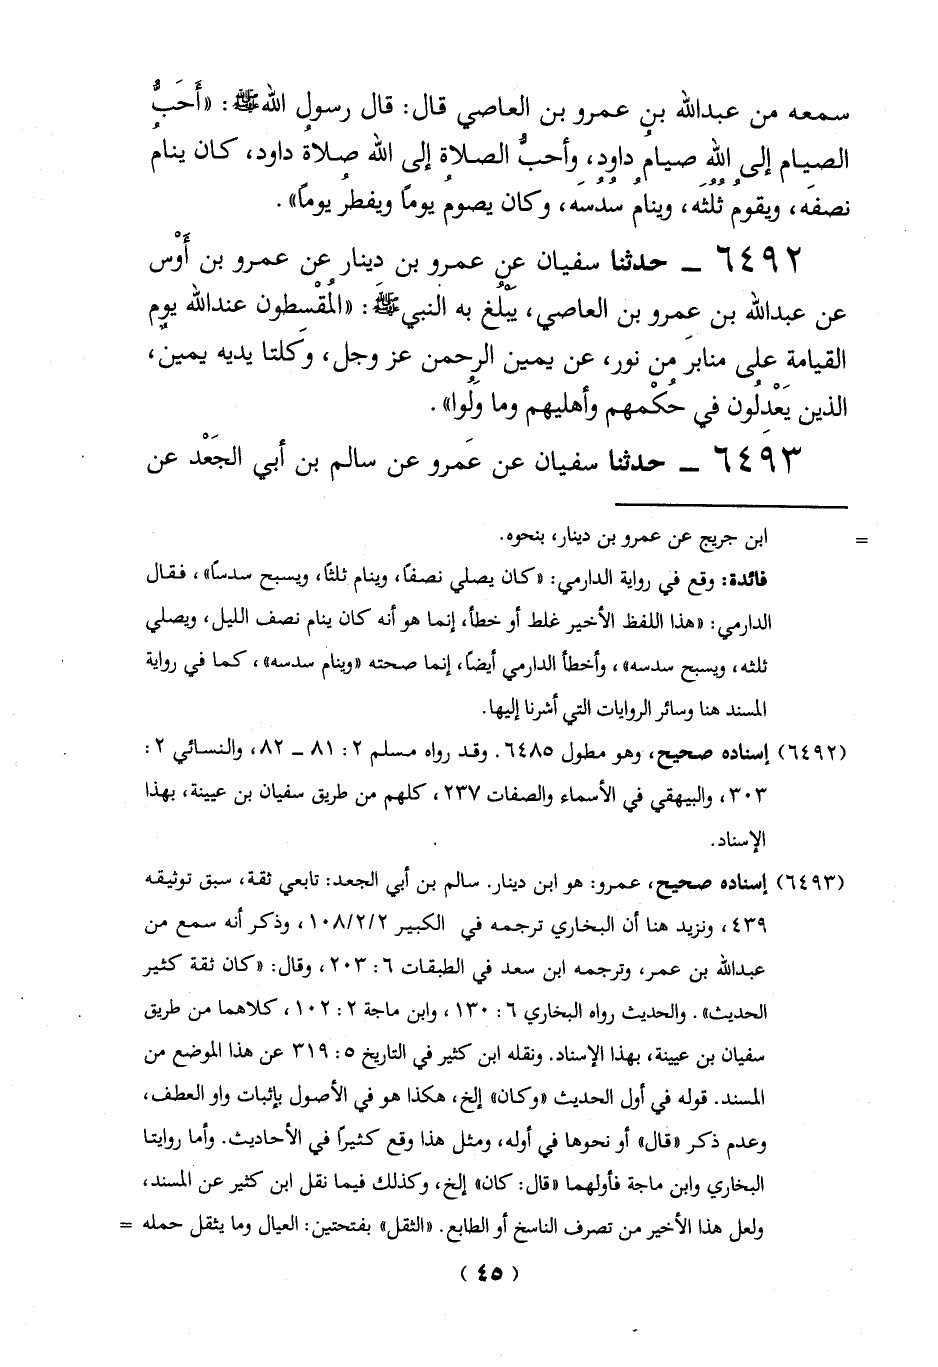 سمعه من عبدالله بن عمرو بن العاصي قال: قال رسول الله ﷺ: «أَحَبُّ
الصيام إلى اللهِ صيامُ داودَ، وأحبُّ الصلاة إلى الله صلاةُ داود، كان ينام
نصفَه، ويقومُ ثُلُثَه، وينامُ سُدُسَه، وكان يصوم يوماً ويفطر يوماً».
٦٤٩٢ ــ حدثنا سفيان عن عمرو بن دينار عن عمرو بن أَوْس
عن عبدالله بن عمرو بن العاصي، يَبْلُغ به النبي ﷺ: «المُقْسطون عندالله يوم
القيامة على منابرَ من نور، عن يمين الرحمن عز وجل، وكلتا يديه يمين،
الذين يَعْدلُون في حُكْمهم وأهليهم وما وَلُوا».
٦٤٩٣ ــ حدثنا سفيان عن عَمرو عن سالم بن أبي الجَعْد عن
= ابن جريج عن عمرو بن دينار، بنحوه.
فائدة: وقع في رواية الدارمي: «كان يصلي نصفاً، وينام ثلثاً، ويسبح سدساً»، فقال
الدارمي: «هذا اللفظ الأخير غلط أو خطأ، إنما هو أنه كان ينام نصف الليل، ويصلي
ثلثه، ويسبح سدسه»، وأخطأ الدارمي أيضاً، إنما صحته «وينام سدسه»، كما في رواية
المسند هنا وسائر الروايات التي أشرنا إليها.
(٦٤٩٢) إسناده صحيح، وهو مطول ٦٤٨٥. وقد رواه مسلم ٢: ٨١ ــ ٨٢، والنسائي ٢:
٣٠٣، والبيهقي في الأسماء والصفات ٢٣٧، كلهم من طريق سفيان بن عيينة، بهذا
الإسناد.
(٦٤٩٣) إسناده صحيح، عمرو: هو ابن دينار. سالم بن أبي الجعد: تابعي ثقة، سبق توثيقه
٤٣٩، ونزيد هنا أن البخاري ترجمه في الكبير ١٠٨/٢/٢، وذكر أنه سمع من
عبدالله بن عمر، وترجمه ابن سعد في الطبقات ٦: ٢٠٣، وقال: «كان ثقة كثير
الحديث». والحديث رواه البخاري ٦: ١٣٠، وابن ماجة ٢: ١٠٢، كلاهما من طريق
سفيان بن عيينة، بهذا الإسناد. ونقله ابن كثير في التاريخ ٥: ٣١٩ عن هذا الموضع من
المسند. قوله في أول الحديث «وكان» إلخ، هكذا هو في الأصول بإثبات واو العطف،
وعدم ذكر «قال» أو نحوها في أوله، ومثل هذا وقع كثيراً في الأحاديث. وأما روايتا
البخاري وابن ماجة فأولهما «قال: كان» إلخ، وكذلك فيما نقل ابن كثير عن المسند،
ولعل هذا الأخير من تصرف الناسخ أو الطابع. «الثقل» بفتحتين: العيال وما يثقل حمله =
( ٤٥ )